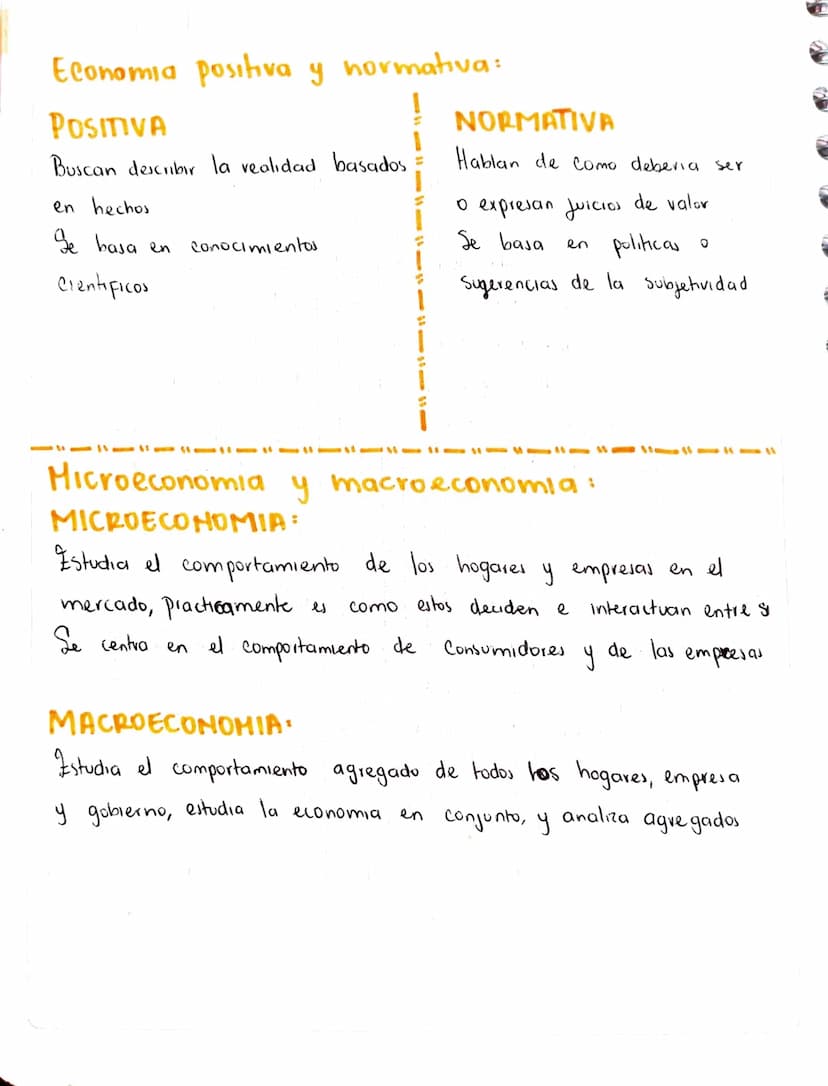 Economia positiva y normativa:
POSITIVA
Buscan describir la realidad basados
en hechos
Se basa en conocimientos
cientificos
NORMATIVA
Hablan de como deberia ser
o expresan juicios de valor
Se basa en politicas o
sugerencias de la subjetividad
Microeconomia y macroeconomia:
MICROECONOMIA:
Estudia el comportamiento de los hogares y empresas en el
mercado, practicamente es como estos deciden e interactuan entre si
Se centra en el comportamiento de consumidores y de las empresas
MACROECONOMIA:
Estudia el comportamiento agregado de todos los hogares, empresa
y gobierno, estudia la economia en conjunto, y analiza agregados